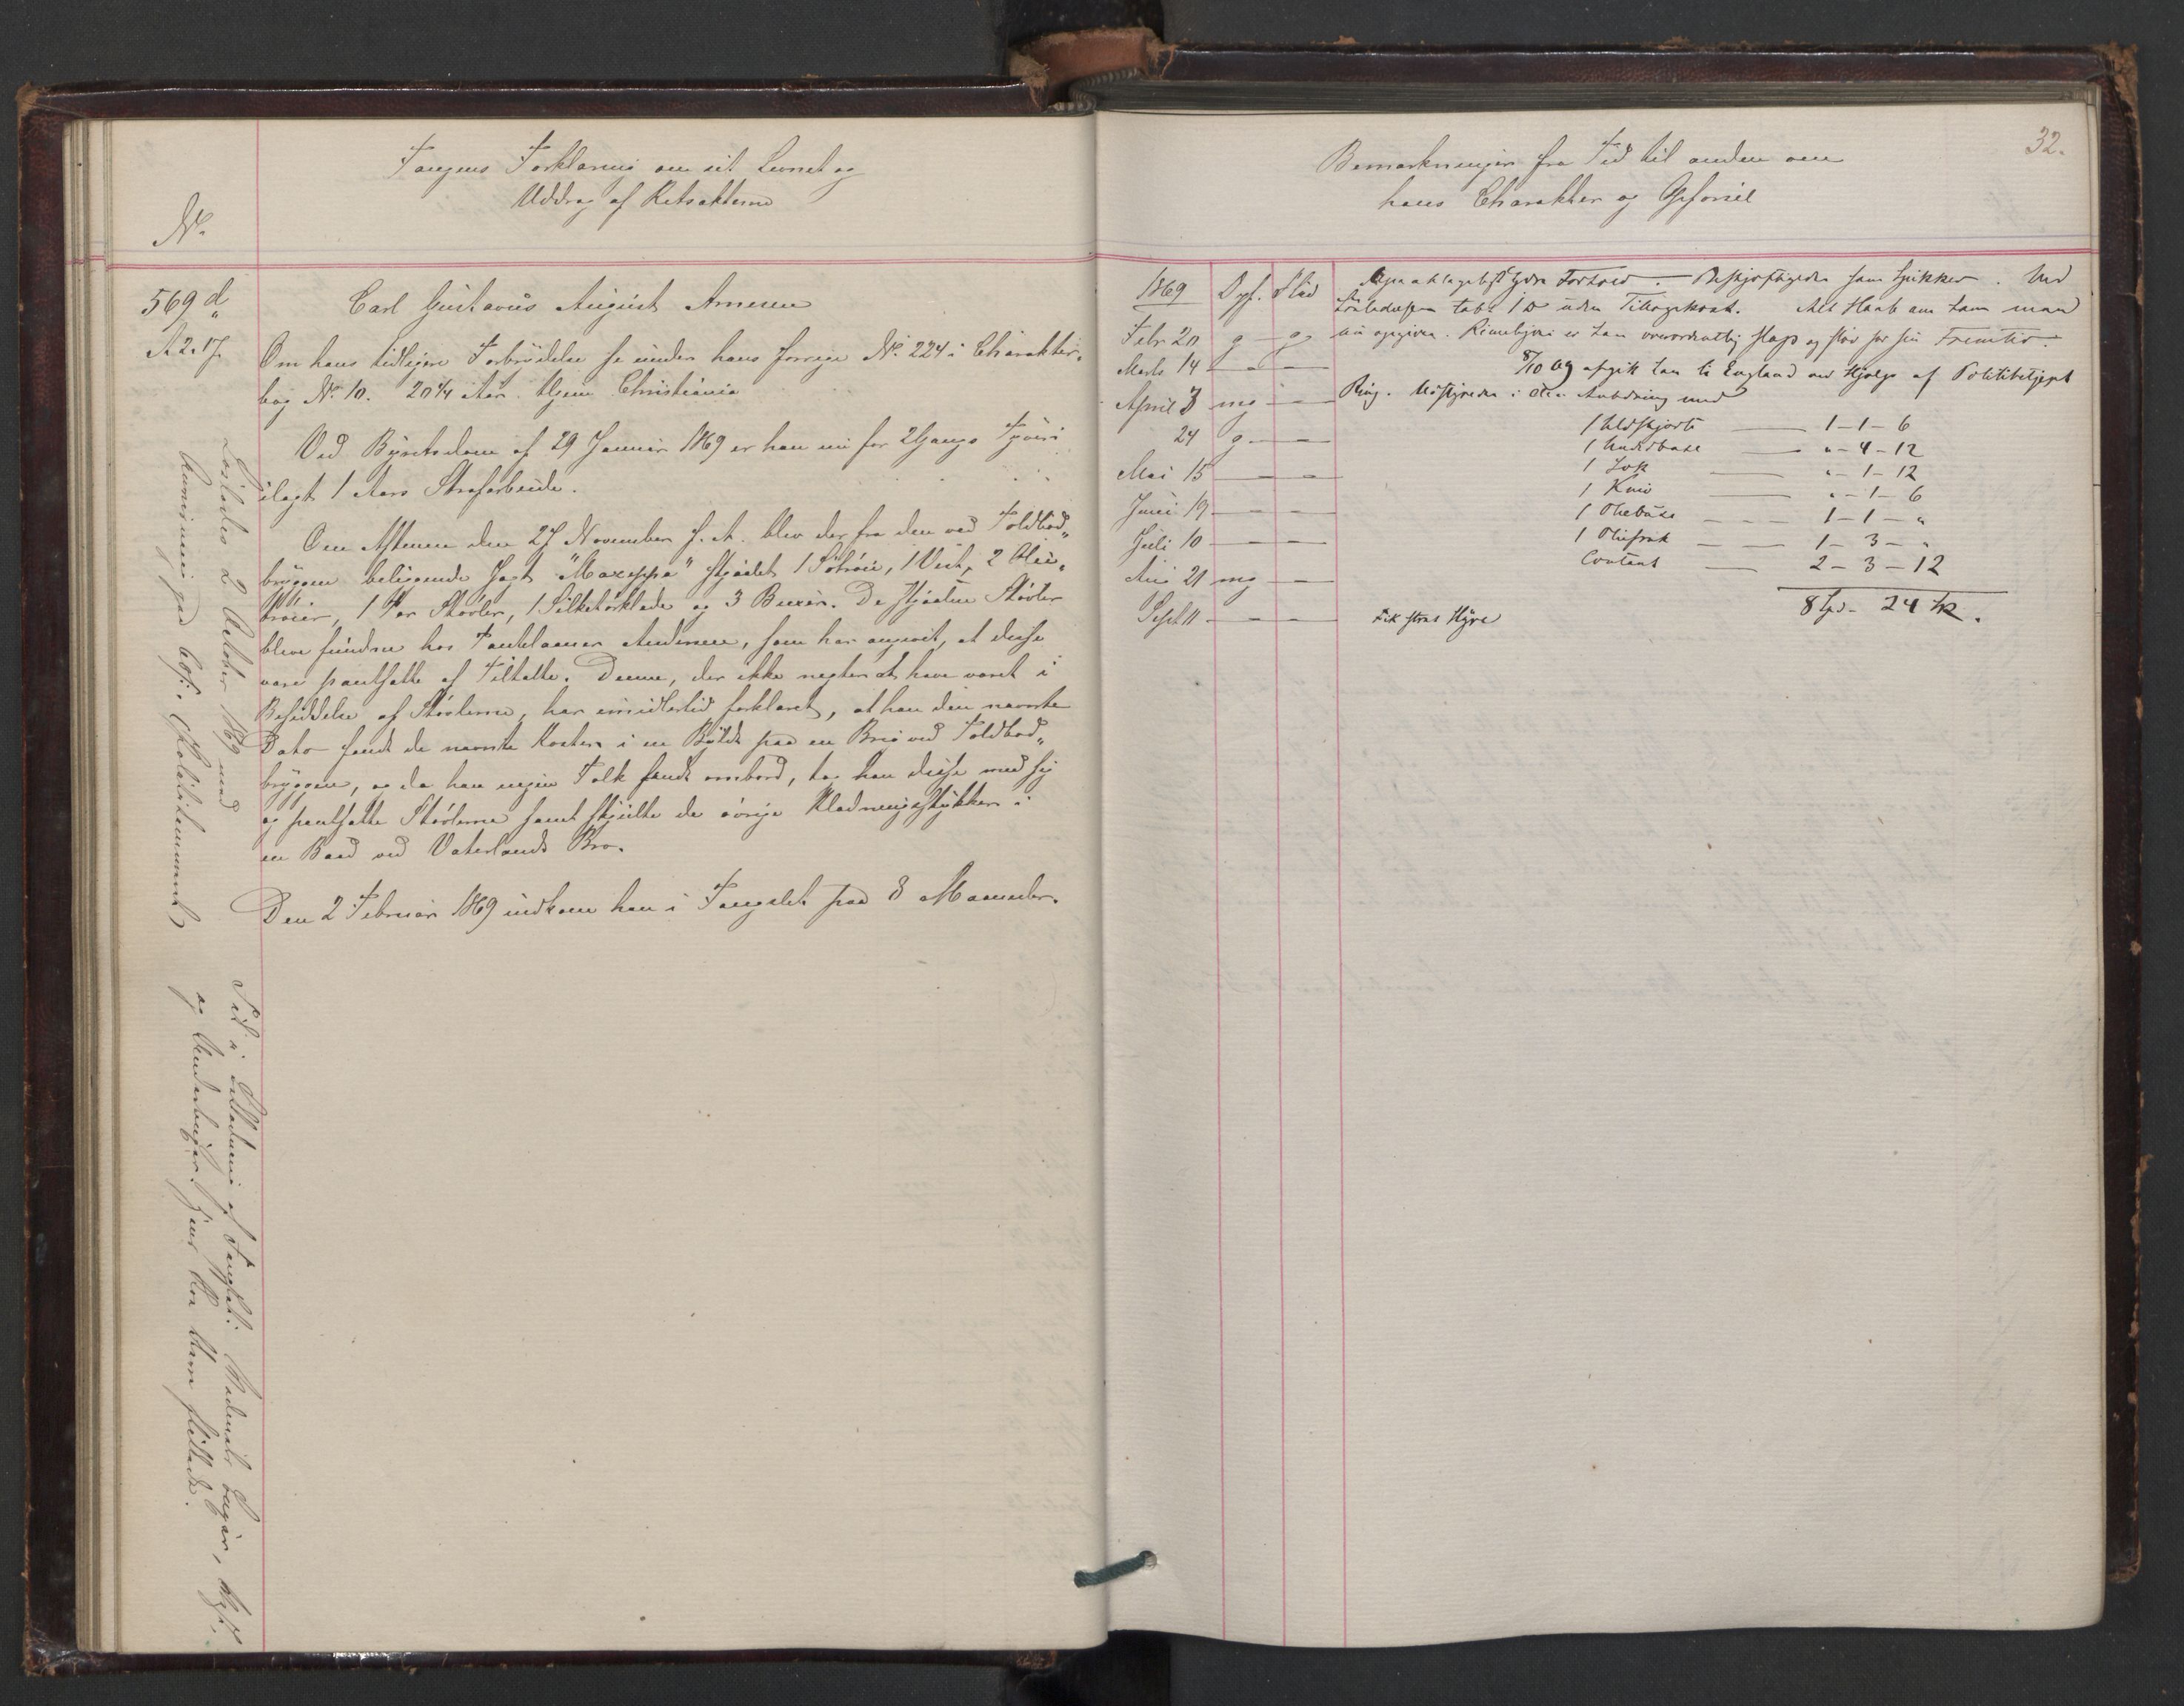 Fangens Forklaring om sit Levnet og
Uddrag af Retsakterne
No.
569 d.
A. 2. 17.
Carl Gustavus August Arnesen
Om hans tidligere Forbrydelse se under hans forrige No. 224 i Charakter-
bog No. 10. 20 1/4 Aar. Hjem Christiania
Ved Byretsdom af 29 Januar 1869 er han nu for 2 Gangs Tyveri
ilagt 1 Aars Strafarbeide.
Om Aftenen den 27 November f. A. blev der fra den ved Toldbod-
bryggen beliggende Jagt "Mazeppa" stjaalet 1 Sötröie, 1 Vest, 2 Olie-
tröier, 1 Par Stövler, 1 Silketörklæde og 3 Buxer. De stjaalne Stövler
bleve fundne hos Pantelaaner Andersen, som har angivet, at disse
vare pantsatte af Tiltalte. Denne, der ikke negter at have været i
Besiddelse af Stövlerne, har imidlertid forklaret, at han den nævnte
Dato fandt de nævnte Koster i en Byldt paa en Brig ved Toldbod-
bryggen, og da han ingen Folk fandt ombord, tog han disse med sig
og pantsatte Stövlerne samt skjulte de övrige Klædningsstykker i
en Baad ved Vaterlands Bro.
Den 2 Februar 1869 indkom han i Fængslet paa 8 Maaneder.
Löslades 2 October 1869 med
Anvisning paa Chr. Politikammer
Tid i
og Underbuxer
32.
Bemærkninger fra Tid til anden om
hans Charakter og Opförsel
1869 Opf. Flid
Febr 20 g g
Marts 14 — —
April 3 mg —
24 g —
Mai 15 — —
Juni 19 — —
Juli 10 — —
Aug 21 mg —
Sept 11 — —
Forhold. Beskjæftigedes som Spikker. Ved
tabt 1 uden Tilbagekomst. Alt Haab om ham maa
nu opgives. er han overordentlig slap og slöv for sin Fremtid.
8/10 69 afgik han til England ved Hjælp af Politibetjent
Ring. i den Anledning med
1 Uldskjorte — 1-1-6
1 Underbuxe — " - 4 - 12
1 — " - 1 - 12
1 Kniv — " - 1 - 6
1 Oliebuxe — 1 - 1 - "
1 Oliefrak — 1 - 3 - "
Contant — 2 - 3 - 12
8 Spd. 24 sk.
Fik strax Hyre